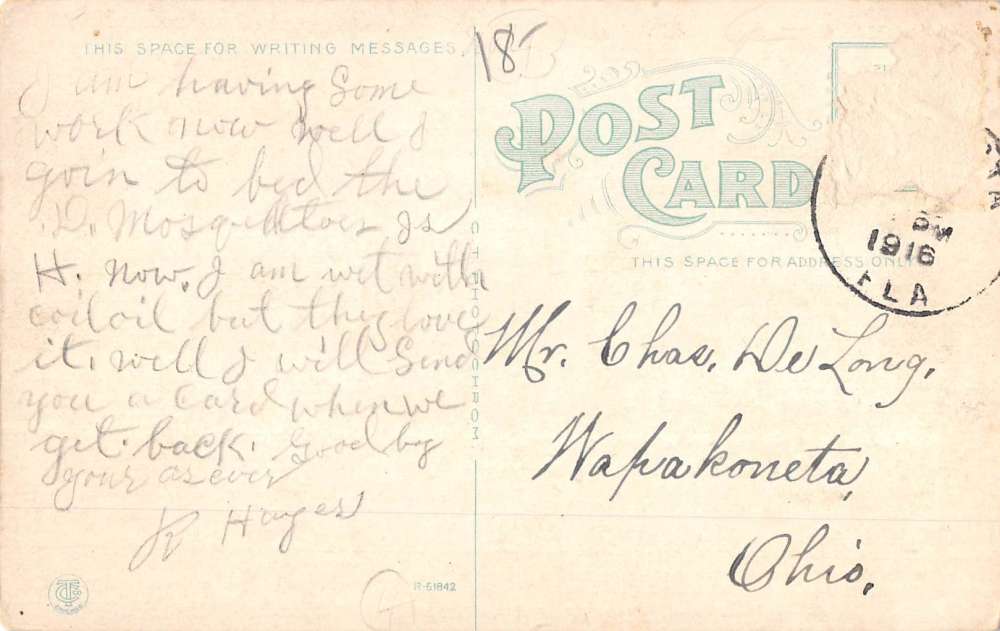 THIS SPACE FOR WRITING MESSAGES
I am having Some
work now well I
goin to bed the
D. Mosquittoes Is
H. now. I am wet with
coiloil but they love
it. well I will Send
you a Card when we
get back. Good by
your as ever
R Hayes
18
POST
CARD
THIS SPACE FOR ADDRESS ONLY
PM
1916
FLA
Mr. Chas. De Long.
Wapakoneta,
Ohio.
CTOCHROM
R-61842